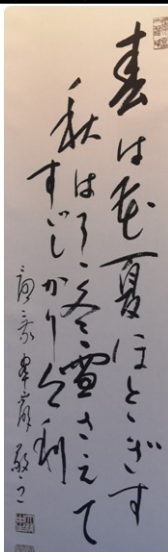 春は花夏ほとゝぎす
秋は月冬雪さえて
すゞしかりけ利